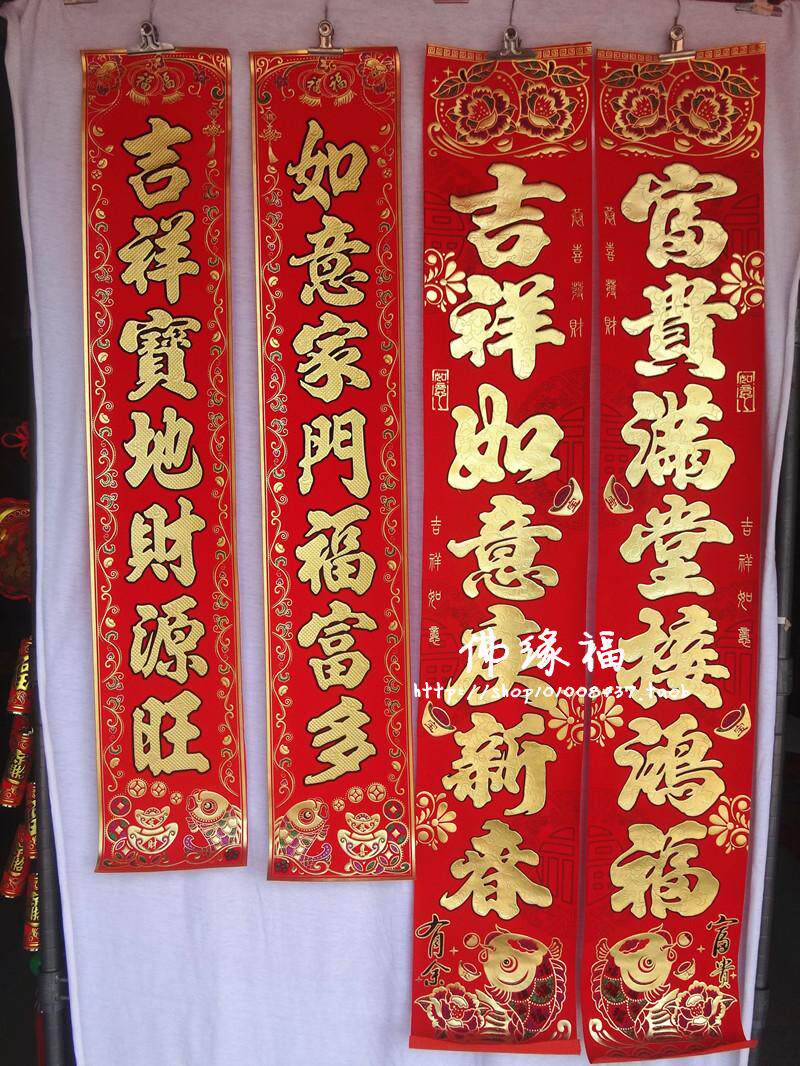 福福
吉祥寶地財源旺
財
福福
如意家門福富多
吉祥如意庆新春
恭喜發財
如意
吉祥如意
有余
富貴滿堂接鴻福
恭喜發財
如意
吉祥如意
富貴
佛缘福
http://shop01008937.taob